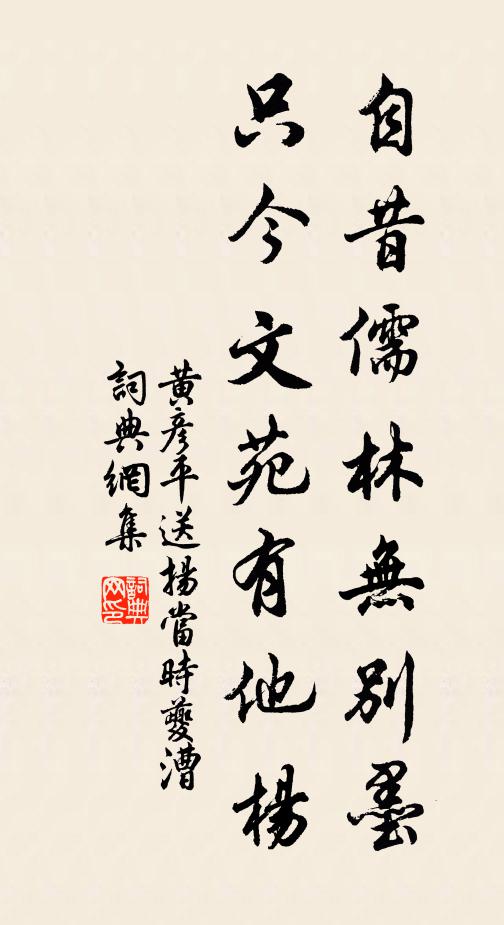 自昔儒林無別墨
只今文苑有他楊
黃彥平送揚當時夔漕
詞典網集
詞典网印